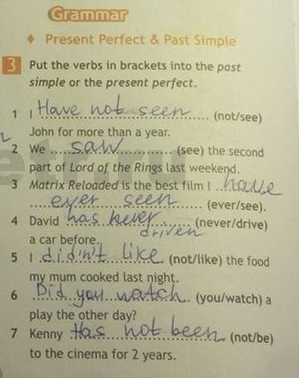 Grammar
♦ Present Perfect & Past Simple
3 Put the verbs in brackets into the past
simple or the present perfect.
1 I Have not seen (not/see)
John for more than a year.
2 We ... saw ... (see) the second
part of Lord of the Rings last weekend.
3 Matrix Reloaded is the best film I .. have
ever seen (ever/see).
4 David has never (never/drive)
driven
a car before.
5 I didn't like (not/like) the food
my mum cooked last night.
6 Did you watch (you/watch) a
play the other day?
7 Kenny Has not been (not/be)
to the cinema for 2 years.